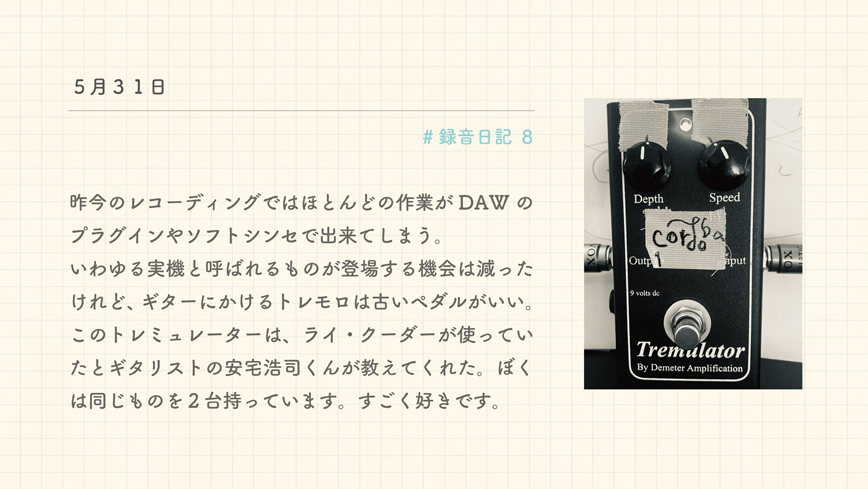 ５月３１日
#録音日記 ８
昨今のレコーディングではほとんどの作業が DAW の
プラグインやソフトシンセで出来てしまう。
いわゆる実機と呼ばれるものが登場する機会は減った
けれど、ギターにかけるトレモロは古いペダルがいい。
このトレミュレーターは、ライ・クーダーが使ってい
たとギタリストの安宅浩司くんが教えてくれた。ぼく
は同じものを２台持っています。すごく好きです。
Depth Speed
9 volts dc
Tremulator
By Demeter Amplification